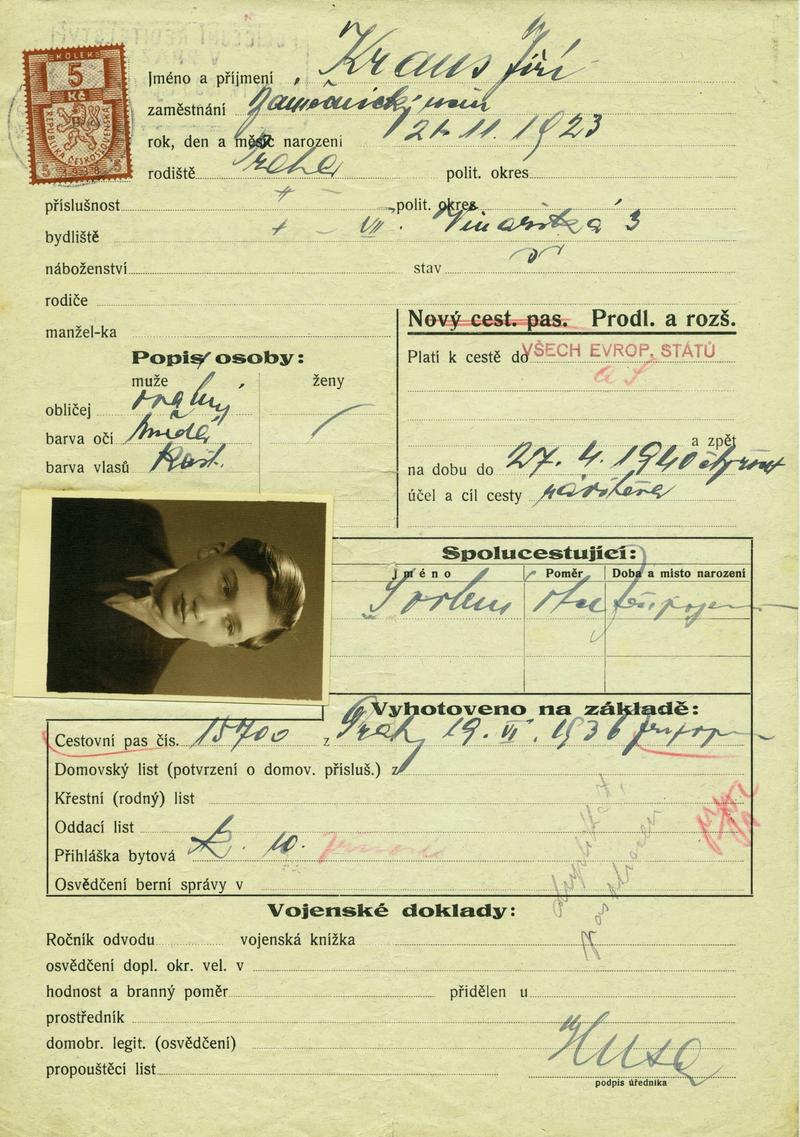 KOLEK
5
Kč
REPUBLIKA ČESKOSLOVENSKÁ
5 1938 5
Jméno a příjmení Kraus Jiří
zaměstnání
rok, den a měsíc narození 21. 11. 1923
rodiště Praha polit. okres
příslušnost " – polit. okres
bydliště " – VII. Vinařská 3
náboženství stav
rodiče
manžel-ka
Nový cest. pas. Prodl. a rozš.
Platí k cestě do VŠECH EVROP. STÁTŮ
a zpět
na dobu do 27. 4. 1940
účel a cíl cesty návštěva
Popis osoby:
muže ženy
obličej oválný
barva očí hnědá
barva vlasů kašt.
Spolucestující:
jméno Poměr Doba a misto narození
Vyhotoveno na základě:
Cestovní pas čís. 15700 z Prahy 19. VI. 1936
Domovský list (potvrzení o domov. přísluš.) z
Křestní (rodný) list
Oddací list
Přihláška bytová 10.
Osvědčení berní správy v
duplikát,
pas ztracen
Vojenské doklady:
Ročník odvodu vojenská knížka
osvědčení dopl. okr. vel. v
hodnost a branný poměr přidělen u
prostředník
domobr. legit. (osvědčení)
propouštěcí list
Husa
podpis úředníka